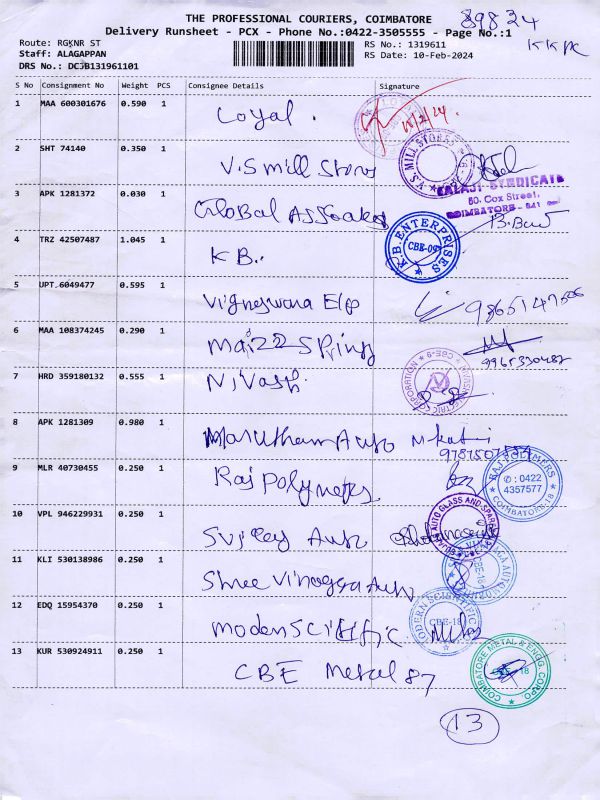 THE PROFESSIONAL COURIERS, COIMBATORE
89824
Delivery Runsheet - PCX - Phone No.:0422-3505555 - Page No.:1
Route: RGKNR ST
RS No.: 1319611
KKPK
Staff: ALAGAPPAN
RS Date: 10-Feb-2024
DRS No.: DCJB131961101
S No Consignment No Weight PCS Consignee Details Signature
1 MAA 600301676 0.590 1 Loyal .
2 SHT 74140 0.350 1 V.S mill Stores
V.S. MILL STORES
3 APK 1281372 0.030 1 Global Associates
BALAJI SYNDICATE
60, Cox Street,
COIMBATORE - 641
4 TRZ 42507487 1.045 1 K B.. B.
K.B. ENTERPRISES
CBE-09
5 UPT 6049477 0.595 1 Vigneswara Elp
6 MAA 108374245 0.290 1 Maizz Spring
9965330487
7 HRD 359180132 0.555 1 Nivash.
CBE-9
8 APK 1281309 0.980 1 Marutham Auto
9 MLR 40730455 0.250 1 Raj Polymers
RAJ POLYMERS
✆ : 0422
4357577
COIMBATORE-18
10 VPL 946229931 0.250 1
AUTO GLASS AND SPARES
11 KLI 530138986 0.250 1 Shree Vinayaga Auto
CBE-18
12 EDQ 15954370 0.250 1 Modenscientific
MODERN SCIENTIFIC
CBE-18
13 KUR 530924911 0.250 1 CBE Metal 87
COIMBATORE METAL & ENGG. CORPO.
13